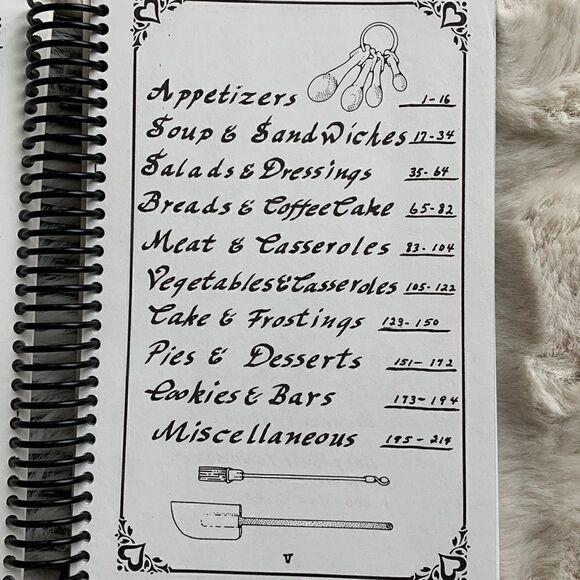 Appetizers 1-16
Soup & Sandwiches 17-34
Salads & Dressings 35-64
Breads & Coffee Cake 65-82
Meat & Casseroles 83-104
Vegetables & Casseroles 105-122
Cake & Frostings 123-150
Pies & Desserts 151-172
Cookies & Bars 173-194
Miscellaneous 195-214
V